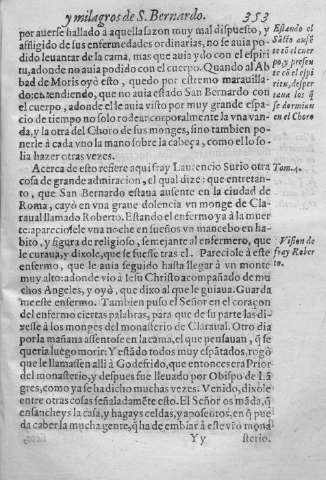 y milagros de S. Bernardo. 353
por auerse hallado à aquella sazon muy mal dispuesto, y
affligido de sus enfermedades ordinarias, no se auia po
dido leuantar de la cama, mas que auia ydo con el espiri
tu, adonde no auia podido con el cuerpo. Quando al Ab
bad de Moris oyó esto, quedo por estremo marauilla-
do: entendiendo, que no auia estado San Bernardo con
el cuerpo, adonde el le auia visto por muy grande espa
cio de tiempo no solo rodear corporalmente la vna van-
da, y la otra del Choro de sus monges, sino tambien po
nerle à cada vno la mano sobre la cabeça, como el lo so
lia hazer otras vezes.
Estando el
Sācto ausē
te cō el cuer
po, y presen
te cō el espi
ritu, desper
taua los q̃
se dormian
en el Choro
Acerca de esto refiere aqui fray Laurencio Surio otra
cosa de grande admiracion, el qual dize: que entretan-
to, que San Bernardo estaua ausente en la ciudad de
Roma, cayó en vna graue dolencia vn monge de Cla-
raual llamado Roberto. Estando el enfermo ya à la muer
te: aparecio sele vna noche en sueños vn mancebo en ha-
bito, y figura de religioso, semejante al enfermero, que
le curaua, y dixole, que le fuesse tras el. Pareciole à este
enfermo, que le auia seguido hasta llegar à vn monte
muy alto: adonde vio à Iesu Christo acompañado de mu
chos Angeles, y oyó, que dixo al que le guiaua. Guarda
me este enfermo. Tambien puso el Señor en el coraçon
del enfermo ciertas palabras, para que de su parte las di-
xesse à los monges del monasterio de Claraual. Otro dia
por la mañana assentose en la cama, el que pensauan, q̃ se
queria luego morir: Y estādo todos muy espātados, rogò
que le llamassen alli à Godefrido, que entonces era Prior
del monasterio, y despues fue lleuado por Obispo de Lā
gres, como ya se ha dicho muchas vezes. Venido, dixole
entre otras cosas señaladamēte esto. El Señor os māda, q̃
ensancheys la casa, y hagays celdas, y aposentos, en q̃ pue
da caber la mucha gente, q̃ ha de embiar à este vr̃o mona
Tom. 4.
Vision de
fray Rober
to.
Y y sterio.